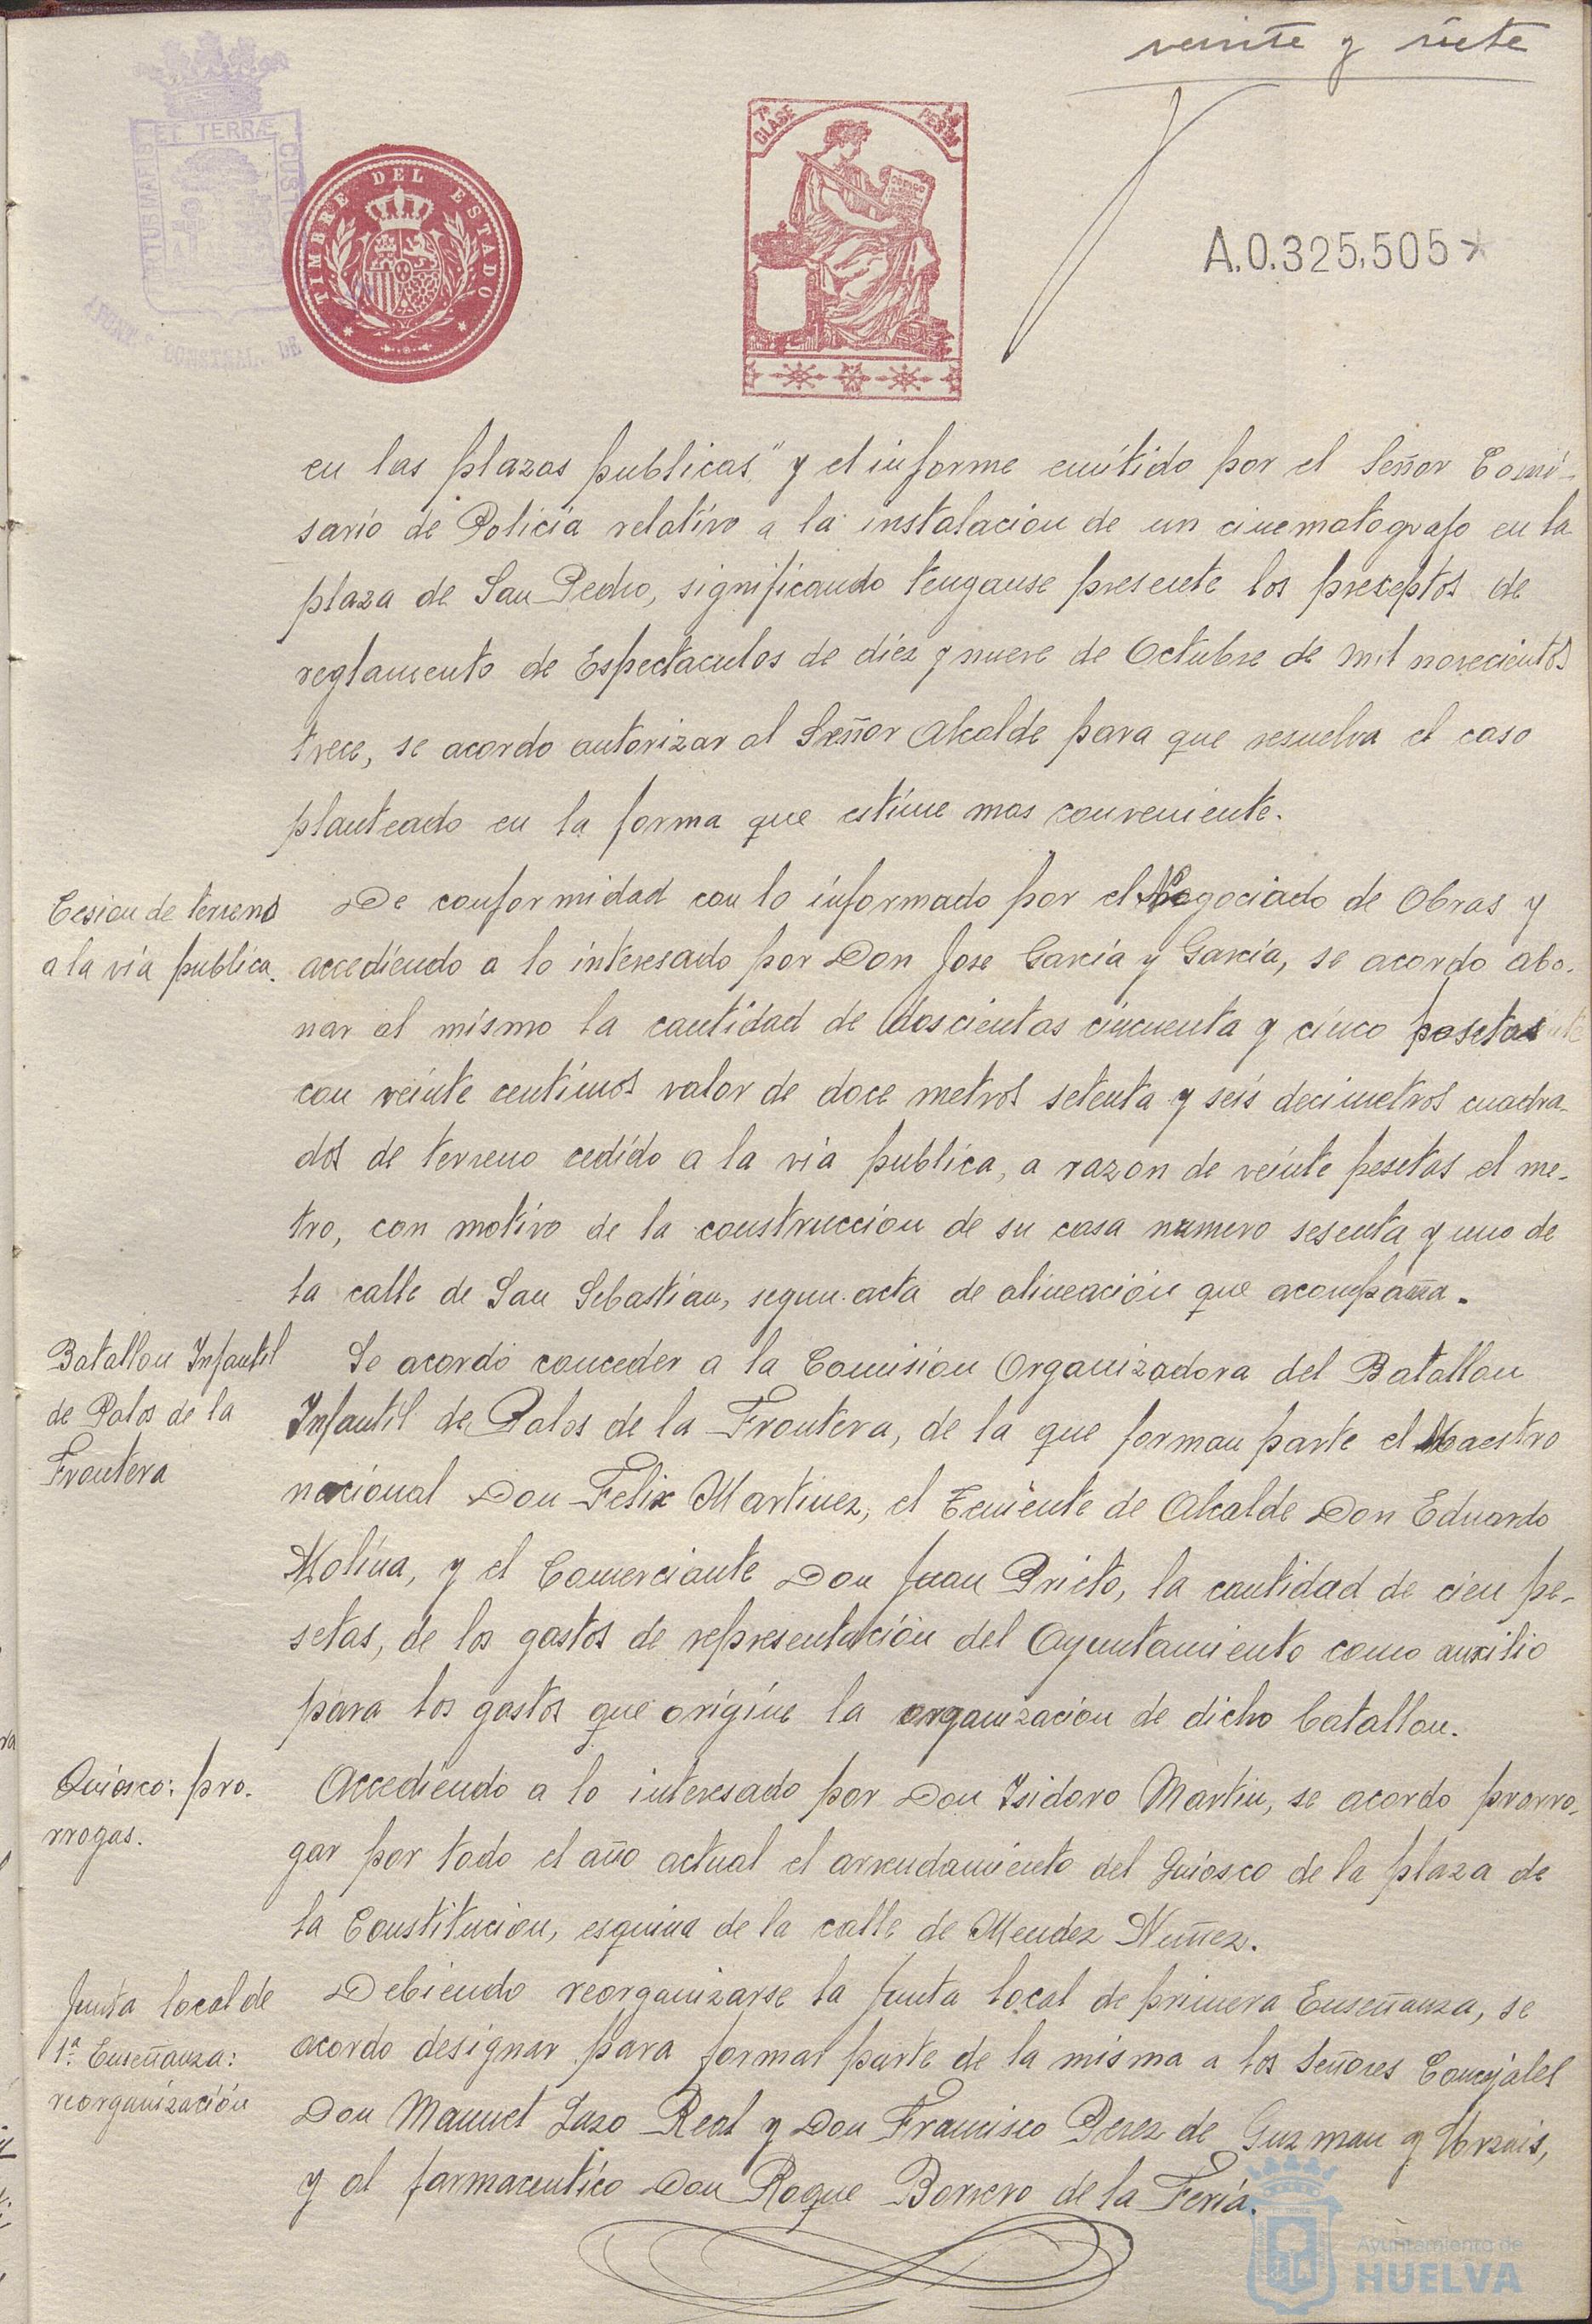 veinte y siete
ET TERRÆ
TIMBRE DEL ESTADO
7ª CLASE
A.0.325.505*
en las plazas publicas" y el informe emitido por el Señor Comi-
sario de Policia relativo a la instalacion de un cinematografo en la
plaza de San Pedro, significando tengause presente los preceptos de
reglamento de Espectaculos de diez y nueve de Octubre de mil novecientos
trece, se acordo autorizar al Señor Alcalde para que resuelva el caso
planteado en la forma que estime mas conveniente.
Cesion de terreno
a la via publica.
De conformidad con lo informado por el Negociado de Obras y
accediendo a lo interesado por Don Jose Garcia y Garcia, se acordo abo-
nar al mismo la cantidad de doscientas cincuenta y cinco pesetas
con veinte centimos valor de doce metros setenta y seis decimetros cuadra-
dos de terreno cedido a la via publica, a razon de veinte pesetas el me-
tro, con motivo de la construccion de su casa numero sesenta y uno de
la calle de San Sebastian, segun acta de alineación que acompaña.
Batallon Infantil
de Palos de la
Frontera
Se acordó conceder a la Comision Organizadora del Batallon
Infantil de Palos de la Frontera, de la que forman parte el Maestro
nacional Don Felix Martinez, el Teniente de Alcalde Don Eduardo
Molina, y el Comerciante Don Juan Prieto, la cantidad de cien pe-
setas, de los gastos de representación del Ayuntamiento como auxilio
para los gastos que origine la organizacion de dicho batallon.
Quiosco: pro-
rrogas.
Accediendo a lo interesado por Don Isidoro Martin, se acordo prorro-
gar por todo el año actual el arrendamiento del Quiosco de la plaza de
la Constitucion, esquina de la calle de Mendez Nuñez.
Junta local de
1ª Enseñanza:
reorganización
Debiendo reorganizarse la Junta local de primera Enseñanza, se
acordo designar para formar parte de la misma a los Señores Concejales
Don Manuel Lazo Real y Don Francisco Perez de Guzman y Urzais,
y al farmaceutico Don Roque Borrero de la Feria.
Ayuntamiento de
HUELVA